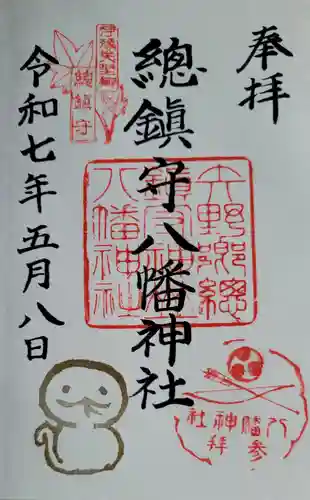 奉拝
總鎮守八幡神社
令和七年五月八日
總鎮守
矢野郷總
鎮守神社
八幡神社
八幡神社
参拝